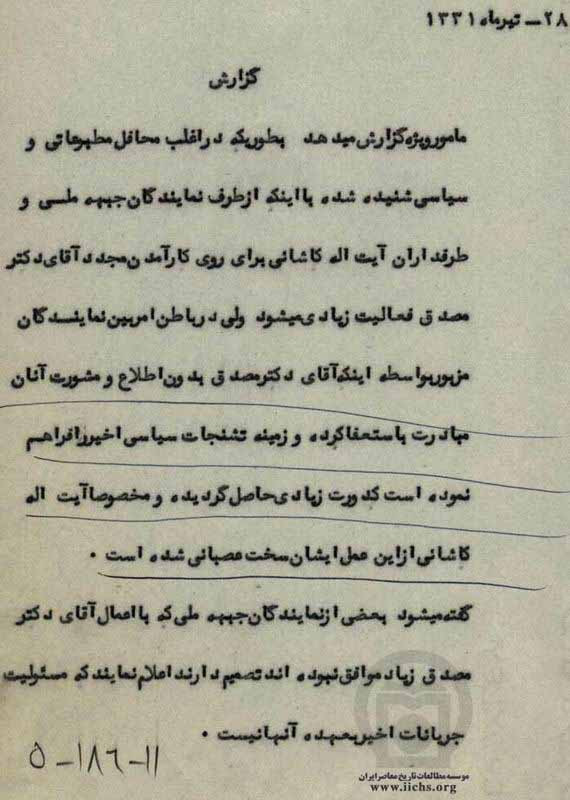 ۲۸ـ تیرماه ۱۳۳۱
گزارش
مامور ویژه گزارش میدهد بطوریکه در اغلب محافل مطبوعاتی و
سیاسی شنیده شده با اینکه از طرف نمایندگان جبهه ملسی و
طرفداران آیت اله کاشانی برای روی کارآمدن مجدد آقای دکتر
مصدق فعالیت زیادی میشود ولی در باطن امر بین نماینسدگان
مزبور بواسطه اینکه آقای دکتر مصدق بدون اطلاع و مشورت آنان
مبادرت باستعفا کرده و زمینه تشنجات سیاسی اخیر را فراهسم
نموده است کدورت زیادی حاصل گردیده و مخصوصا آیت اله
کاشانی از این عمل ایشان سخت عصبانی شده است ۰
گفته میشود بعضی از نمایندگان جبهه ملی که با اعمال آقای دکتر
مصدق زیاد موافق نبوده اند تصمیم دارند اعلام نمایند که مسئولیت
جریانات اخیر بعهده آنها نیست ۰
۵-۱۸۶-۱۱
موسسه مطالعات تاریخ معاصر ایران
www.iichs.org